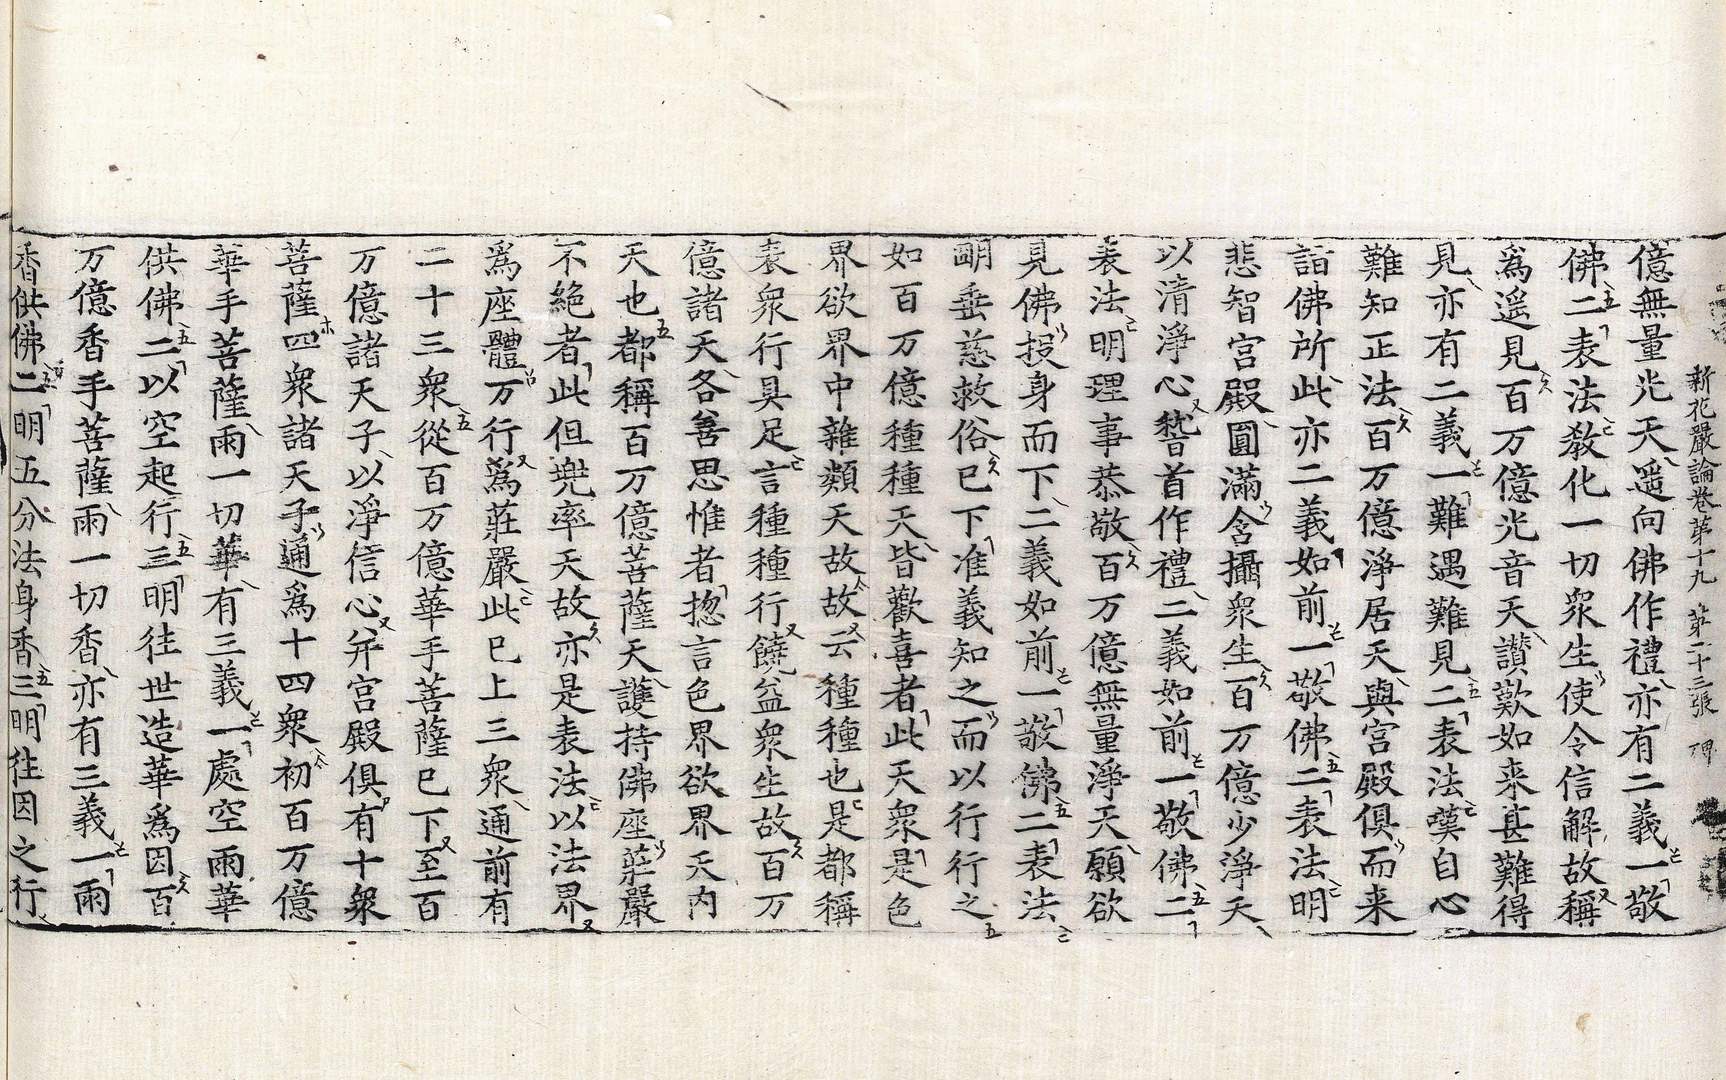 新花嚴論卷第十九 第二十三張 碑
億無量光天遥向佛作禮亦有二義一敬
佛二表法教化一切衆生使令信解故稱
爲遥見百万億光音天讃歎如来甚難得
見亦有二義一難遇難見二表法嘆自心
難知正法百万億淨居天與宮殿俱而来
詣佛所此亦二義如前一敬佛二表法明
悲智宮殿圓滿含攝衆生百万億少淨天
以清淨心稽首作禮二義如前一敬佛二
表法明理事恭敬百万億無量淨天願欲
見佛投身而下二義如前一敬佛二表法
明垂慈救俗已下准義知之而以行行之
如百万億種種天皆歡喜者此天衆是色
界欲界中雜類天故故云種種也是都稱
表衆行具足言種種行饒益衆生故百万
億諸天各善思惟者揔言色界欲界天内
天也都稱百万億菩薩天護持佛座莊嚴
不絕者此但兠率天故亦是表法以法界
爲座體万行爲莊嚴此已上三衆通前有
二十三衆從百万億華手菩薩已下至百
万億諸天子以淨信心并宮殿俱有十衆
菩薩四衆諸天子通爲十四衆初百万億
華手菩薩雨一切華有三義一處空雨華
供佛二以空起行三明往世造華爲因百
万億香手菩薩雨一切香亦有三義一雨
香供佛二明五分法身香三明往因之行